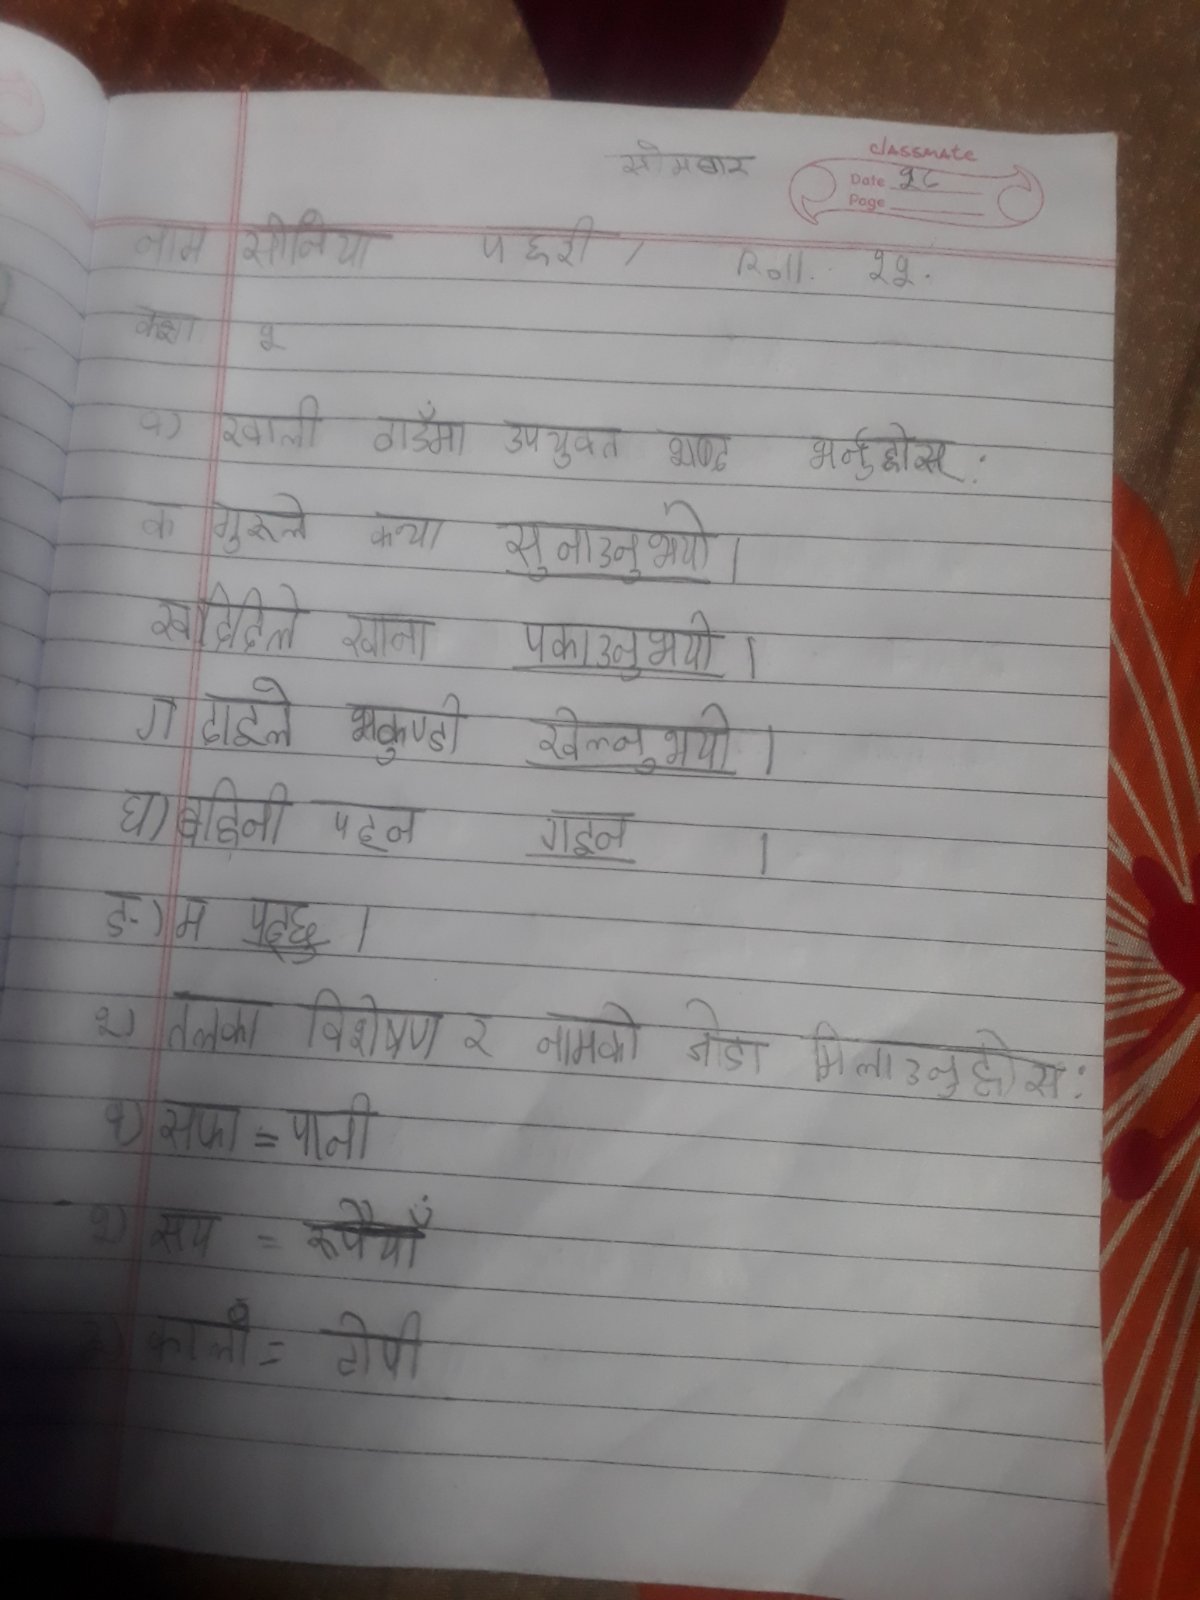 सोमबार
classmate
Date १८
Page
नाम सोनिया पहरी / Roll. ११.
कक्षा १
१) खाली ठाउँमा उपयुक्त शब्द भर्नुहोस् :
क गुरुले कथा सुनाउनुभयो ।
ख दिदिले खाना पकाउनुभयो ।
ग दाइले भकुण्डो खेल्नुभयो ।
घ) बहिनी पढ्न गइन ।
ङ) म पढ्छु ।
२) तलका विशेषण र नामको जोडा मिलाउनुहोस :
१) सफा = पानी
२) सय = रुपैयाँ
कालो = टोपी